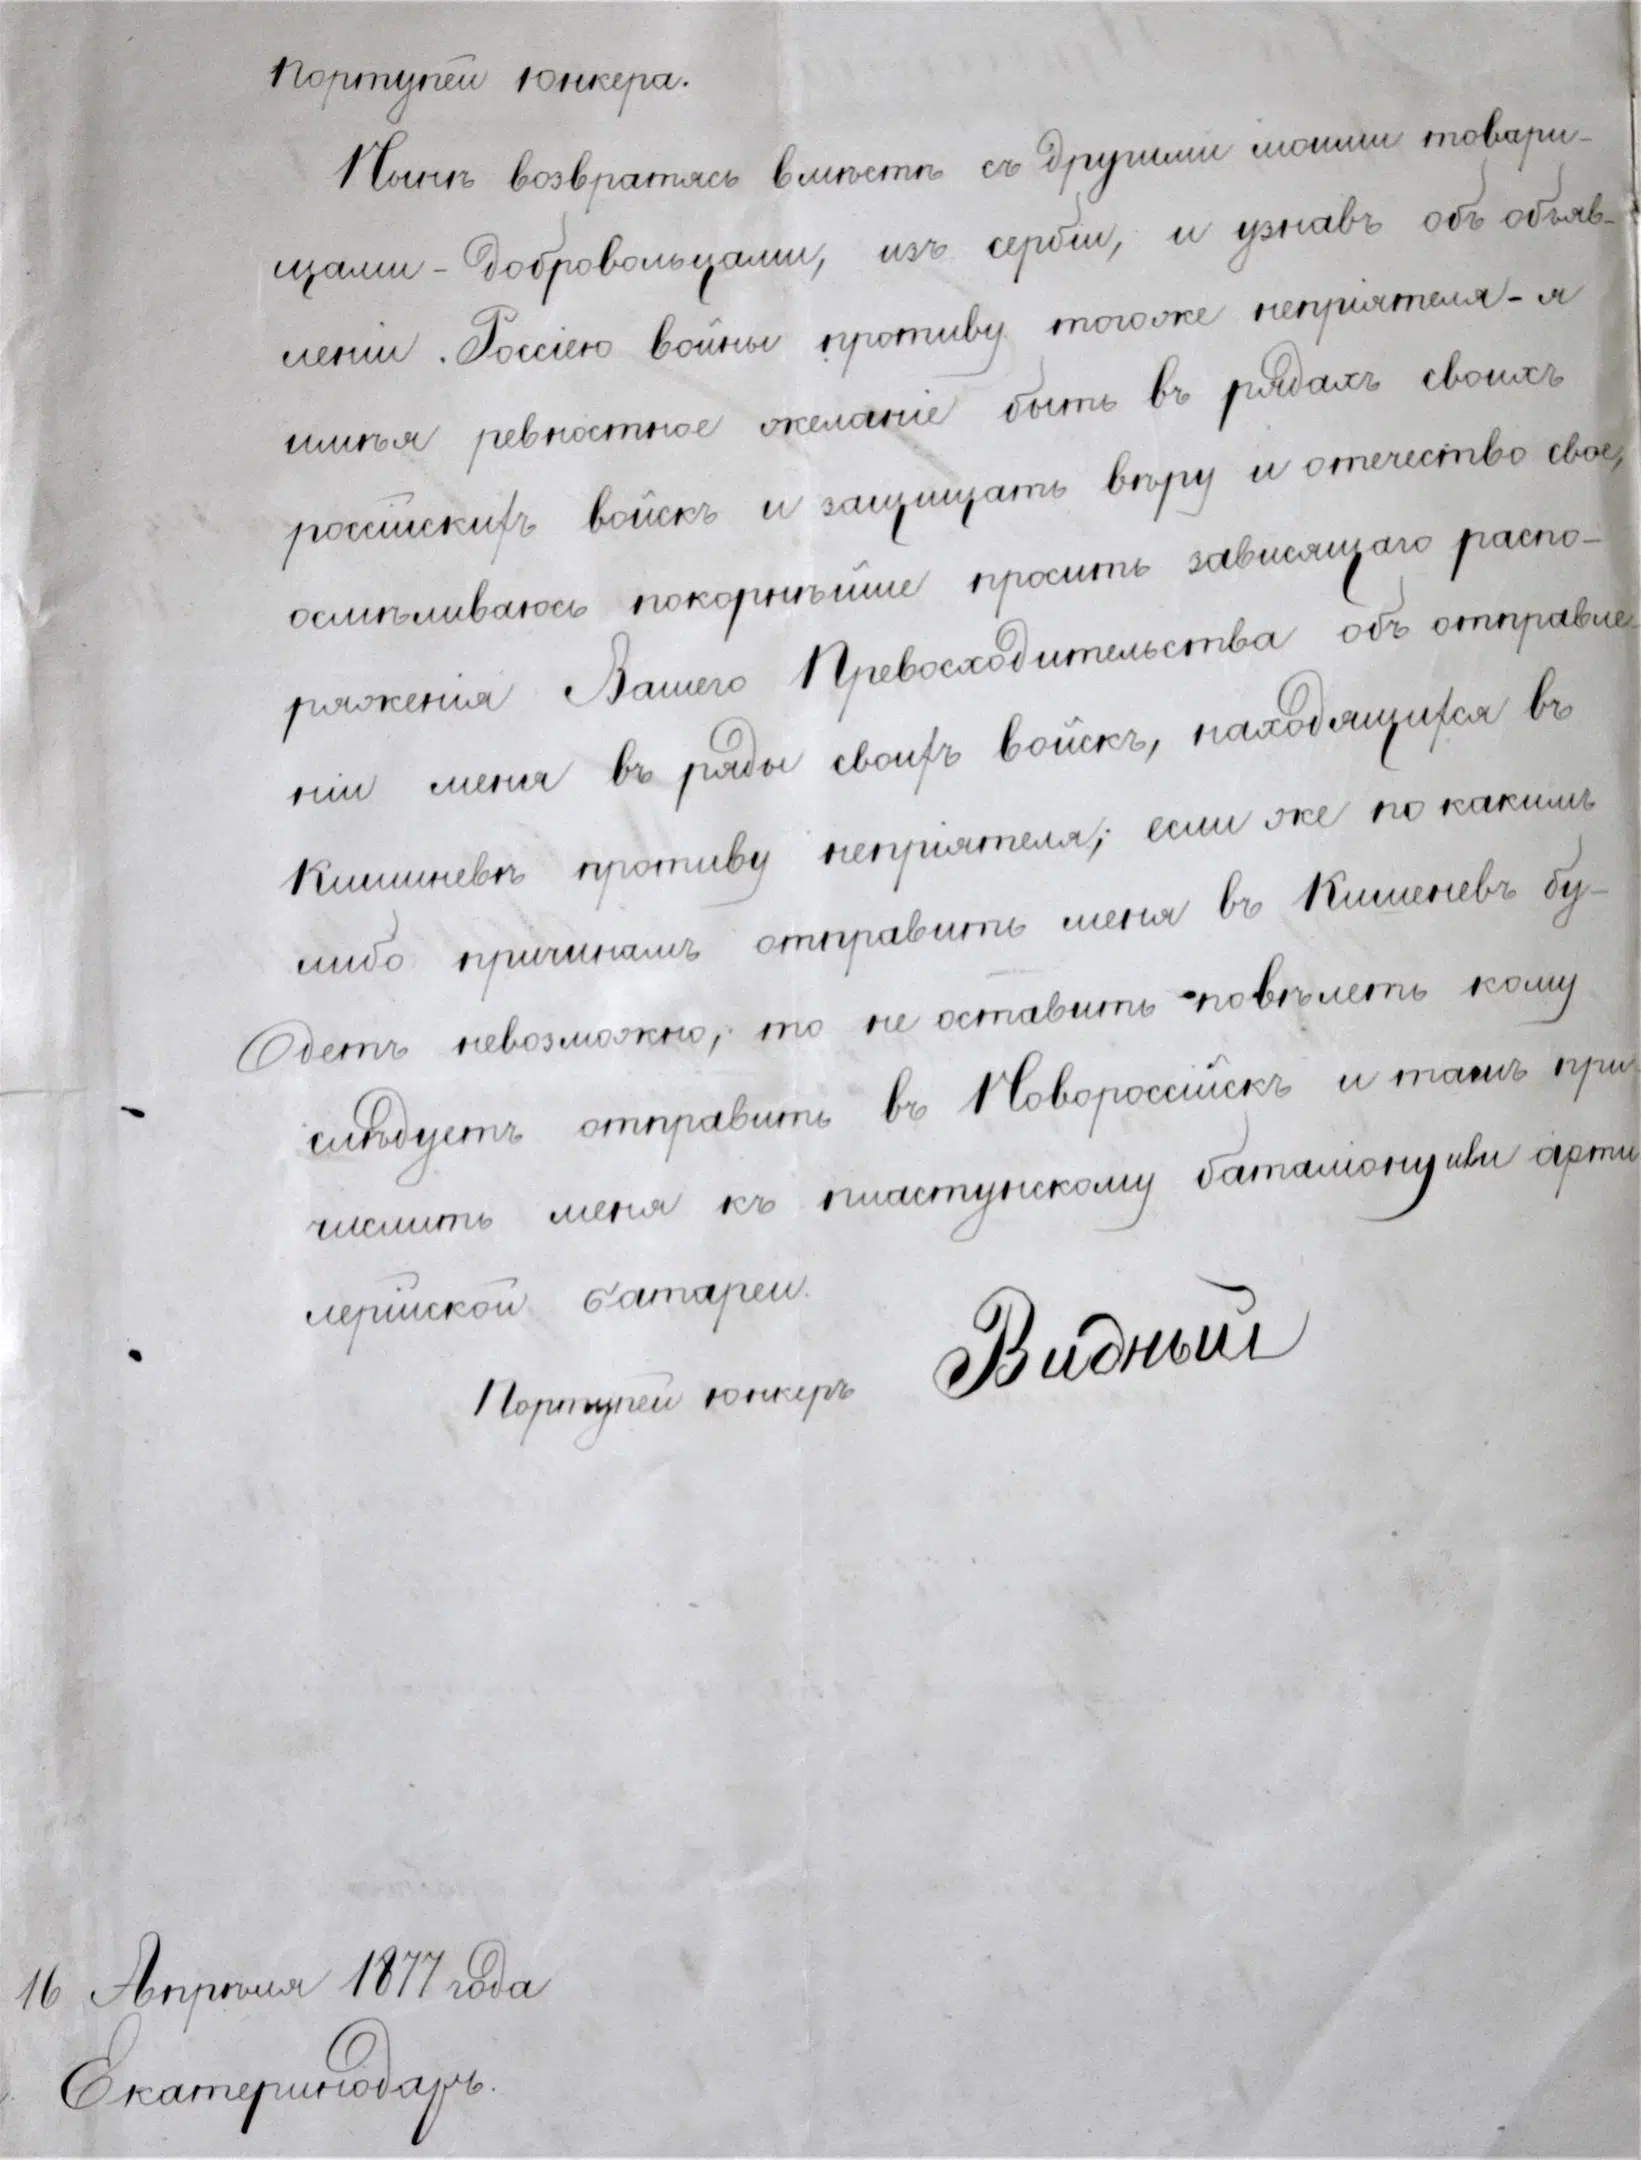 Портупей юнкера.
Нынѣ возвратясь вмѣстѣ съ другими моими товари-
щами - добровольцами, изъ сербіи, и узнавъ объ объяв-
леніи Россіею войны противу тогоже непріятеля - я
имѣя ревностное желаніе быть въ рядахъ своихъ
россійскихъ войскъ и защищать вѣру и отечество свое,
осмѣливаюсь покорнѣйше просить зависящаго распо-
ряженія Вашего Превосходительства объ отправле-
ніи меня въ ряды своихъ войскъ, находящихся въ
Кишиневѣ противу непріятеля; если же по какимъ
либо причинамъ отправить меня въ Кишеневъ бу-
детъ невозможно, то не оставить повѣлеть кому
слѣдуетъ отправить въ Новороссійскъ и тамъ при
числить меня къ пластунскому баталіону или арти
лерійской батареи.
Портупей юнкеръ Видный
16 Апрѣля 1877 года
Екатеринодаръ.